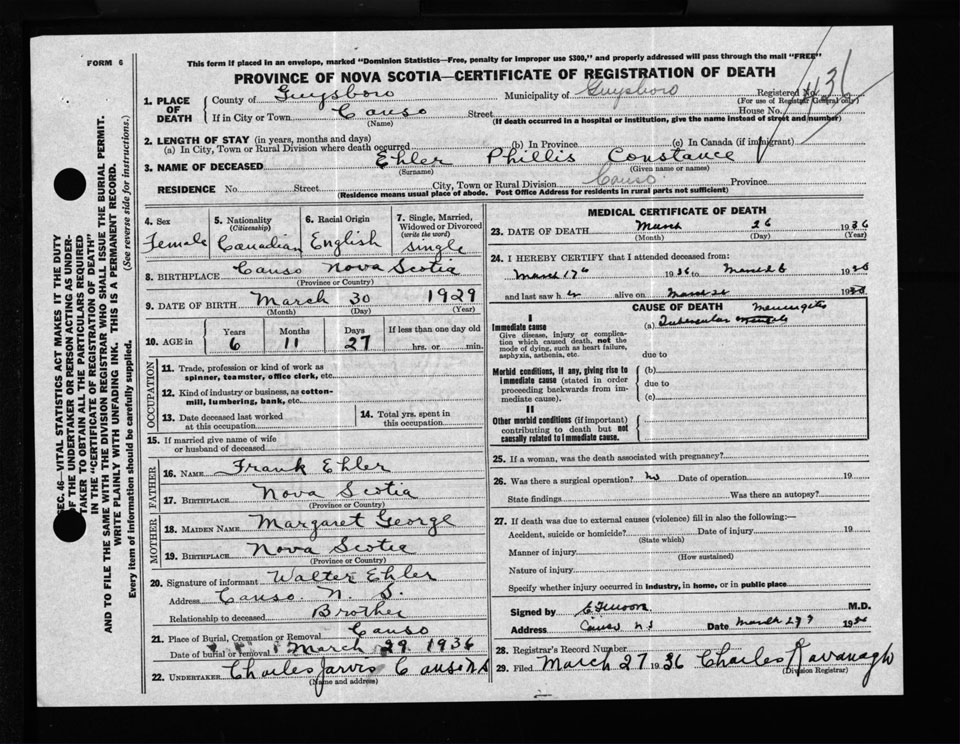 FORM 6
This form if placed in an envelope, marked "Dominion Statistics—Free, penalty for improper use $300," and properly addressed will pass through the mail "FREE"
PROVINCE OF NOVA SCOTIA—CERTIFICATE OF REGISTRATION OF DEATH
SEC. 46—VITAL STATISTICS ACT MAKES IT THE DUTY
OF THE UNDERTAKER OR PERSON ACTING AS UNDER-
TAKER TO OBTAIN ALL THE PARTICULARS REQUIRED
IN THE "CERTIFICATE OF REGISTRATION OF DEATH"
AND TO FILE THE SAME WITH THE DIVISION REGISTRAR WHO SHALL ISSUE THE BURIAL PERMIT.
WRITE PLAINLY WITH UNFADING INK. THIS IS A PERMANENT RECORD.
Every item of information should be carefully supplied. (See reverse side for instructions.)
1. PLACE OF DEATH County of Guysboro Municipality of Guysboro Registered No.
(For use of Registrar General only)
If in City or Town Canso Street House No.
(Name) (If death occurred in a hospital or institution, give the name instead of street and number)
2. LENGTH OF STAY (in years, months and days)
(a) In City, Town or Rural Division where death occurred (b) In Province (c) In Canada (if immigrant)
3. NAME OF DECEASED Ehler Phillis Constance
(Surname) (Given name or names)
RESIDENCE No. Street City, Town or Rural Division Canso Province
(Residence means usual place of abode. Post Office Address for residents in rural parts not sufficient)
4. Sex Female
5. Nationality (Citizenship) Canadian
6. Racial Origin English
7. Single, Married, Widowed or Divorced (write the word) Single
8. BIRTHPLACE Canso Nova Scotia
(Province or Country)
9. DATE OF BIRTH March 30 1929
(Month) (Day) (Year)
10. AGE in Years 6 Months 11 Days 27 If less than one day old hrs. or min.
OCCUPATION
11. Trade, profession or kind of work as spinner, teamster, office clerk, etc.
12. Kind of industry or business, as cotton-mill, lumbering, bank, etc.
13. Date deceased last worked at this occupation
14. Total yrs. spent in this occupation
15. If married give name of wife or husband of deceased
FATHER
16. NAME Frank Ehler
17. BIRTHPLACE Nova Scotia
(Province or Country)
MOTHER
18. MAIDEN NAME Margaret George
19. BIRTHPLACE Nova Scotia
(Province or Country)
20. Signature of informant Walter Ehler
Address Canso. N. S.
Relationship to deceased Brother
21. Place of Burial, Cremation or Removal Canso
Date of burial or removal March 29 1936
22. UNDERTAKER Charles Jarvis Canso N.S
(Name and address)
MEDICAL CERTIFICATE OF DEATH
23. DATE OF DEATH March 26 1936
(Month) (Day) (Year)
24. I HEREBY CERTIFY that I attended deceased from:
March 17th 1936 to March 1936
and last saw h alive on March 26 1936
CAUSE OF DEATH
I
Immediate cause
Give disease, injury or complication which caused death, not the mode of dying, such as heart failure, asphyxia, asthenia, etc.
(a) Tubercular Meningitis
due to
Morbid conditions, if any, giving rise to immediate cause (stated in order proceeding backwards from immediate cause).
(b)
due to
(c)
II
Other morbid conditions (if important) contributing to death but not causally related to immediate cause.
25. If a woman, was the death associated with pregnancy?
26. Was there a surgical operation? no Date of operation 19
State findings Was there an autopsy?
27. If death was due to external causes (violence) fill in also the following:—
Accident, suicide or homicide? Date of injury 19
(State which)
Manner of injury
(How sustained)
Nature of injury
Specify whether injury occurred in industry, in home, or in public place
Signed by M.D.
Address Canso N S Date March 27 1936
28. Registrar's Record Number
29. Filed March 27 1936 Charles Kavanagh
(Division Registrar)